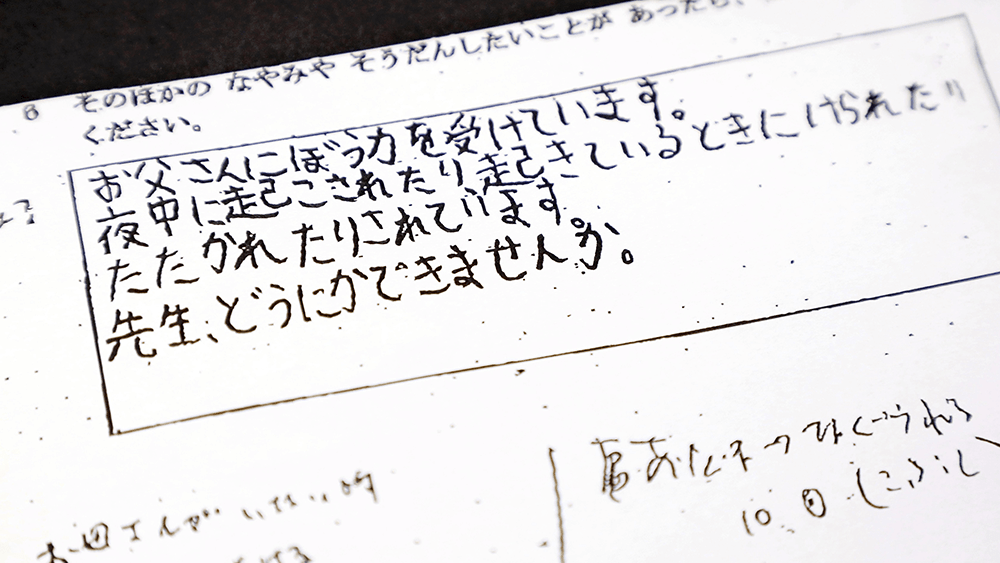 6 そのほかの なやみや そうだんしたいことが あったら、
ください。
お父さんにぼう力を受けています。
夜中に起こされたり起きているときにけられたり
たたかれたりされています。
先生、どうにかできませんか。
10回(こぶし